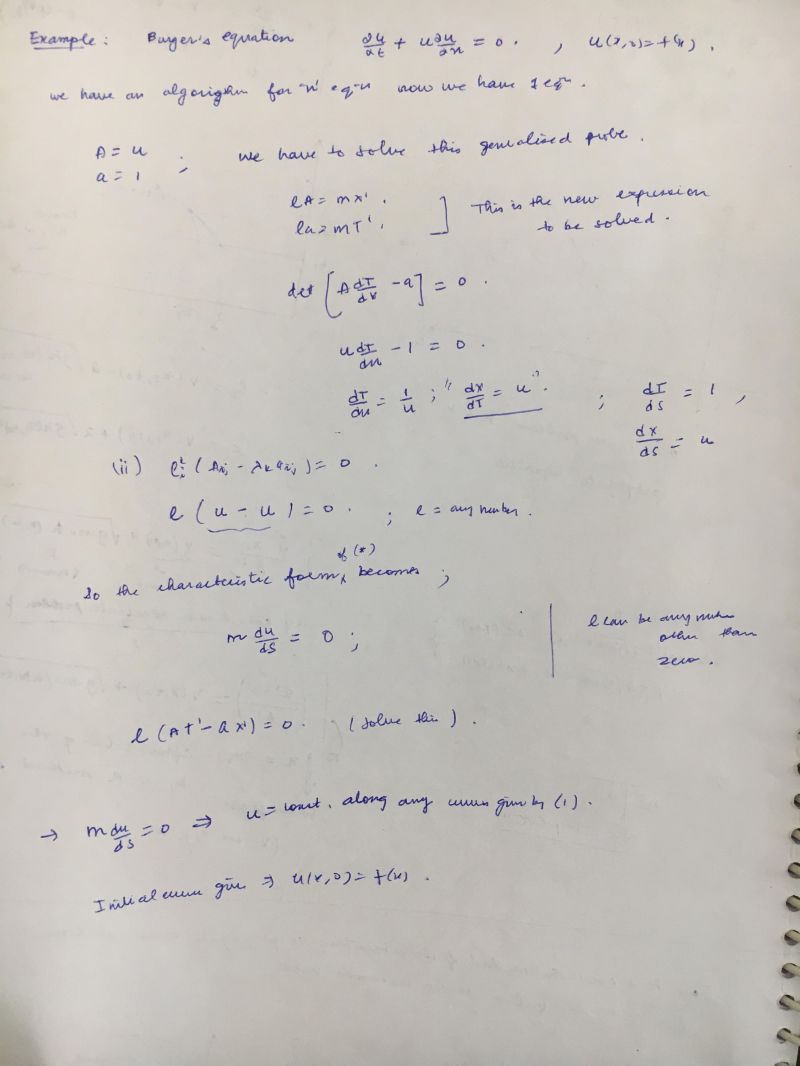 Example: Burger's equation ∂u/∂t + u ∂u/∂x = 0. , u(x,0) = f(x).
we have an algorigthm for 'n' eq-n now we have 1 eqn.
A = u
a = 1 ; we have to solve this generalised probe.
lA = mX'.
la = mT'. ] This is the new expression
to be solved.
det [A dT/dX - a] = 0.
u dT/dx - 1 = 0.
dT/dx = 1/u ; " dX/dT = u ". ; dT/ds = 1 ,
dX/ds = u
(ii) (Aij - λk aij) = 0.
l (u - u) = 0. ; l = any number.
So the characteristic form of (*) becomes ;
m du/ds = 0 ;
l can be any number
other than
zero.
l (AT' - aX') = 0. (solve this).
→ m du/ds = 0 ⇒ u = const. along any curves given by (1).
Initial curve give ⇒ u(x,0) = f(x).